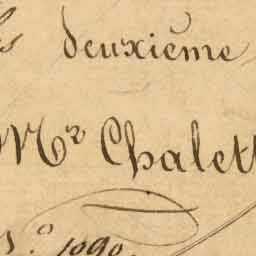 deuxième
Mr Chalett
1090.